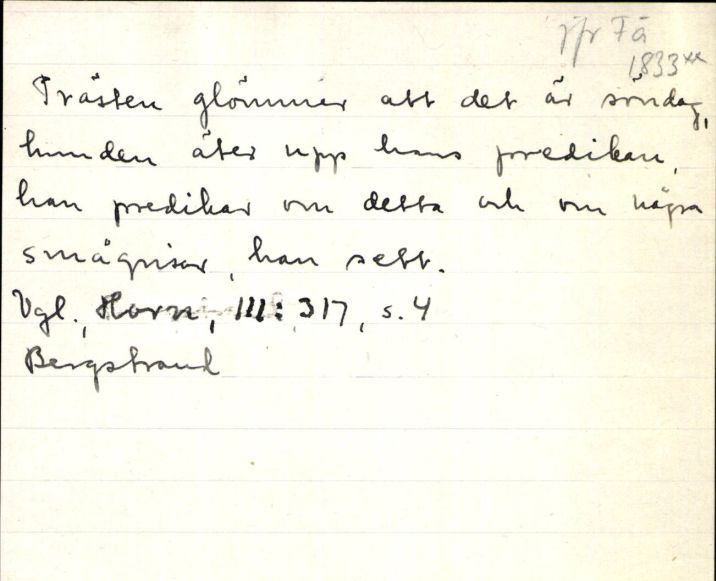 jfr Få
1833**
Prästen glömmer att det är söndag,
hunden äter upp hans predikan,
han predikar om detta och om några
smågrisar, han sett.
Vgl., Horn, III: 317, s. 4
Bergstrand